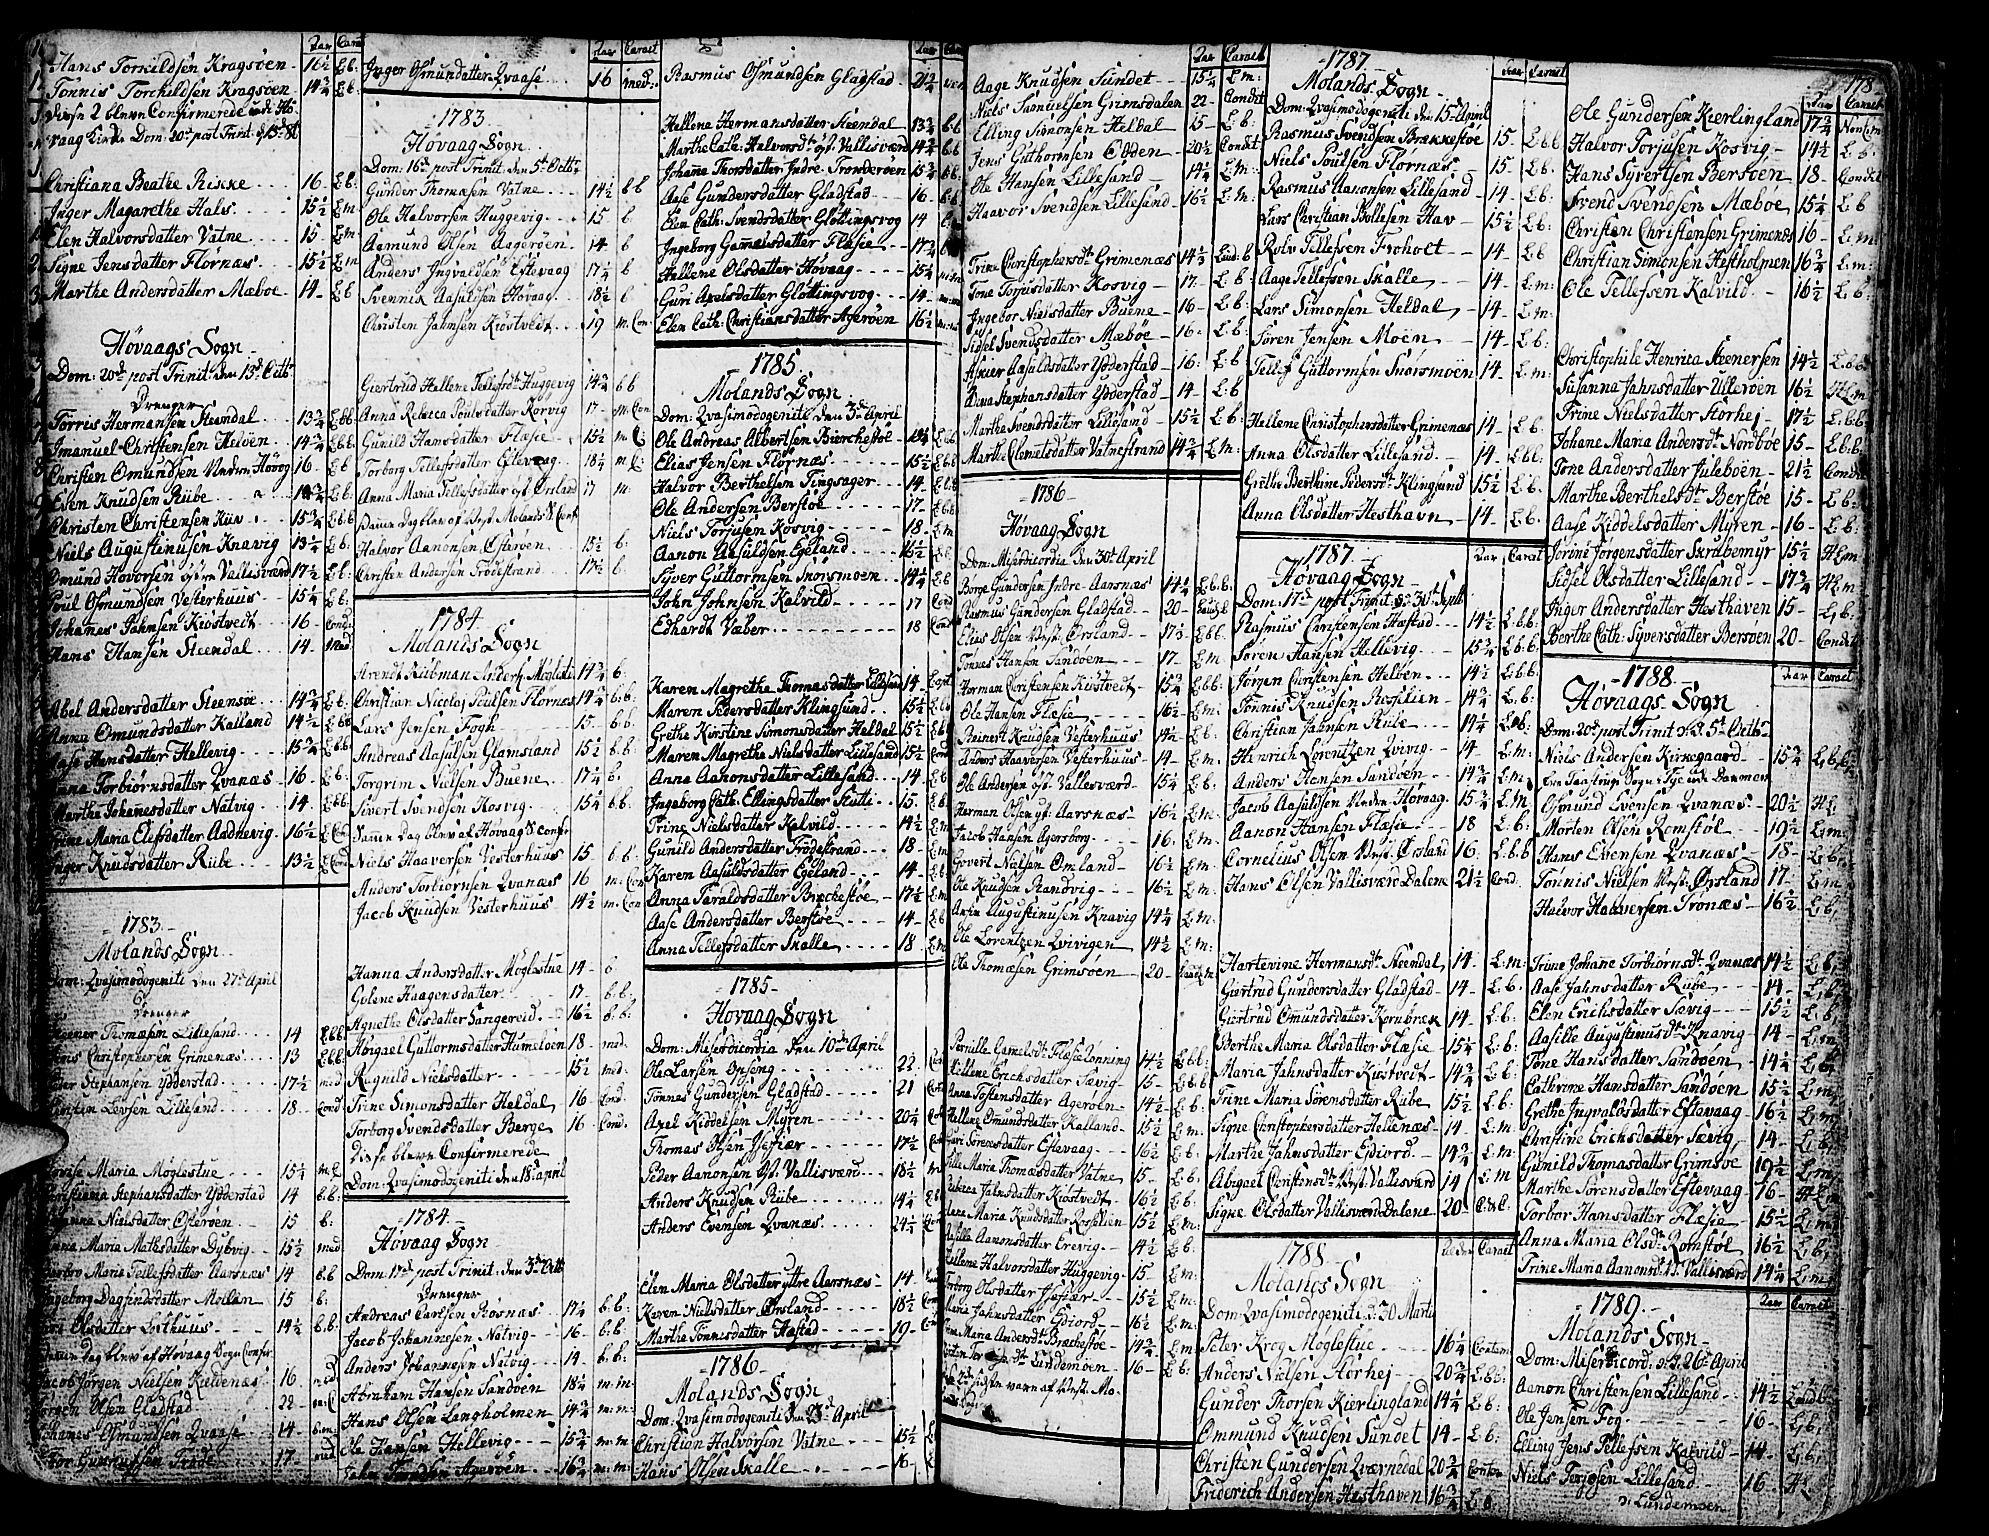 Aar Caract
Hans Torkildsen Kragsøen 16½ L.b.
Tønnis Torchildsen Kragsøen 14¾ L.b.
disse 2 bleve Confirmerede
Kirke Dom. 20de post Trinit.
Christiana Beathe Rikke 16 L.b.
Inger Magarethe Hals 15½ L.m
Elen Halvorsdatter Vatne 15 L.m
Signe Jensdatter Flornæs 15½ L.m
Marthe Andersdatter Mæboe 14 L.b
Høvaags Sogn
Dom: 20de post Trinit. den 13de Octbr
Drenger
Torris Hermansen Steendal 13¾ L.b.b.
Imanuel Christensen Heløen 14¾ L.b.b.
Christen Omundsen Neden Høvog 16 L.b
Even Knudsen Rübe L.b.
Christen Christensen 15¾ L.b.b
Niels Augustinusen Knavig 13¼ L.b:
Omund Hovorsen østre Vallisværd 17½ L.b.
Poul Osmundsen Vesterhuus 15¼ L.b:
Johanes Jahnsen Kiøstvedt 16 Cond:
Hans Hansen Steendal 14 Med
Abel Andersdatter Steensøe 14¾ L.b.
Anna Omundsdatter Kalland 14½ L.b
Aase Hansdatter Hellevig 15¾ L.b.b
Anna Torbiørnsdatter Qvanæs 16 L.b.
Marthe Johanesdatter Natvig 14 L.b.b
Trine Maria Elefsdatter Aadnevig 16½ L.Con
Inger Knudsdatter Rübe 13½ L.Cond
1783
Molands Sogn
Dom: Qvasimodogeniti den 27de April
Drenger
Thomasen Lillesand 14 L.b.b.
Christophersen Grimenæs 13 L.b.b.
Stephansen Ydderstad 17½ med
Levsen Lillesand 18 Cond
Maria Møglestue 15½ m.C
Christiana Stephansdatter Ydderstad 14 b.b.
Nielsdatter Osterøen 15 b:
Anna Maria Mathisdatter Dybvig 15½ med
Maria Tellefsdatter Aarsnæs 14 b.b
Ingeborg Dagfindsdatter Moelan 15 b:
Olsdatter Losthuus 14½ b.b.
Samme dag blev af Høvaag Sogn Confir
Jacob Jørgen Nielsen Kieldenæs 16
Jørgen Olsen Gladstad 22
Johanes Osmundsen Qvaase 14
Gunnufsen Trøde 17
Aar Caract
Inger Osmundatter Qvaase 16 med:
1783
Høvaag Sogn
Dom. 16de post Trinit. den 5te Octbr
Gunder Thomæsen Vatne 14½ b.b
Ole Halvorsen Huggevig 15 b.
Aamund Olsen Aagerøen 14 b
Anders Ingvaldsen Eftevaag 17¼ b
Svennik Aasulsen Høvaag 18½ b.
Christen Jahnsen Kiøstvedt 19 m. Con.
Giertrud Hellene Tellefsdt. Huggevig 14¾ b.b
Anna Rebeca Poulsdatter Korvig 17 m. Con
Gunild Hansdatter Flæsie 15½ m. C
Torborg Tellefsdatter Eftevaag 18¼ m. C.
Anna Maria Tellefsdatter øst Ørsland 17 m.
Samme Dag blev af Vest Molands S Conf
Halvor Aanonsen Osterøen 15½ b.
Christen Andersen Trødestrand 17½ b.
1784
Molands Sogn
Arendt Riibman Anders. Møglestu 14¾ b.
Christian Nicolaj Poulsen Flornæs 14¾ b.b.
Lars Jensen Fogh 15 b.b.
Andreas Aasulsen Glamsland 15½ b.b.
Torgrim Nielsen Buene 17¼ b.
Sivert Svendsen Kosvig 15¼ b.b.
Samme Dag blev af Høvaag S confir
Niels Haaversen Vesterhuus 15 b.b.
Anders Torbiørnsen Qvanæs 16 m. Con
Jacob Knudsen Vesterhuus 14½ m. Con
Hanna Andersdatter Møglestue 14 b
Golene Haagensdatter 17 b.b.
Agnethe Olsdatter Sangereid 16½ b.b.
Abigael Guttormsdatter Humeløen 18 med.
Ragnild Nielsdatter 15½ med.
Trine Simonsdatter Heldal 16 Cond.
Torborg Svendsdatter Berge 16 Cond.
Disse bleve Confirmerede
Dom: Qvasimodogeniti den 18de april
1784
Høvaag Sogn
Dom: 17de post Trinit: den 3de Octb
Drenger
Andreas Carlsen Røsnæs 17¼ b.b.
Jacob Johannesen Natvig 16 b.b.
Anders Johannesen Natvig 14 b.b.
Abraham Hansen Sandøen 18¼ m:m.
Hans Olsen Langholmen 14¾ m:m.
Ole Hansen Hellevig 15¾ m:m
John Trondsen Agerøen 16¾ m:m:
Aar
Rasmus Osmundsen Gladstad 21¾
Hellene Hermansdatter Steendal 13¾ b.b
Marthe Cath: Halvorsdt. øst. Vallisværd 14¾ b.b
Johanne Thorsdatter Indre Tronderøen 15¾ b.b.
Aase Gundersdatter Gladstad 16 b.b.
Elen Cath: Svendsdatter Gløttingsvog 14
Ingeborg Gamelsdatter Flæsie 17¾
Hellene Olsdatter Høvaag 15¼
Guri Axelsdatter Gløttingsvog 14
Elen Cath: Christiansdatter Agerøen 16½
1785
Molands Sogn
Dom: Qvasimodogeniti den 3de April
Ole Andreas Albertsen Bierchestøe
Elias Jensen Flornæs 15½ L.b.b
Halvor Berthelsen Tingsager 14 L.b.b
Ole Andersen Berstøe 17 L.b.b
Niels Torjusen Kosvig 18 L.m
Aanon Aasuldsen Egeland 16½ L.b.
Syver Guttormsen Snorsmoen 14¼ L.b
John Johnsen Kalvild 17 Cond
Edhardt Væber 18 Cond
Karen Magrethe Thomasdatter Ellefsund 14
Maren Pedersdatter Klingsund 15½ L.b
Grethe Kirstine Simonsdatter Heldal 15½ L.b
Maren Magrethe Nielsdatter Lillesand 15½ Cond
Anna Aanonsdatter Lillesand 14 L.b
Ingeborg Cath: Ellingsdatter 15 L.b.
Trine Nielsdatter Kalvild 14½ L.m
Gunild Andersdatter Trødestrand 18 L.m
Karen Aasuldsdatter Egeland 14 L.b.
Anna Taraldsdatter Brøckestøe 17½ L.m
Aase Andersdatter Berstøe 14 L.b
Anna Tellefsdatter Skalle 18 L.m
1785
Høvaag Sogn
Dom: Misericordia den 10de April
Ole Larsen Opseng 22
Tønnes Gundersen Gladstad 21
Axel Kiddelsen Myren 20¼
Thomas Olsen Jesiær 17½
Peder Aanonsen øst. Vallisværd 18½ m
Anders Knudsen Rübe 14½
Anders Evensen Qvanæs 24½
Elen Maria Olsdatter yttre Aarsnæs 14
Karen Nielsdatter Ørsland 18½
Marthe Tønnisdatter Hæstad 19
1786
Molands Sogn
Dom: Qvasimodogeniti den 23de April
Christian Halvorsen Vatne 15½
Hans Olsen Skalle 16
Aar Caract
Aage Knudsen Sundet 15¼ L.m:
Niels Samuelsen Grimsdalen 22 Condit
Elling Simonsen Heldal 15 L.b:
Jens Guthormsen Odden 20½ Condit
Ole Hansen Lillesand 14¼ L.m:
Haavor Svendsen Lillesand 16½ L:m.
Trine Christophersdt. Grimenæs 14½ Laud.b
Tone Torjusdatter Kosvig 17 L:b:
Ingebor Nielsdatter Buene 16 L:b:
Sidsel Svendsdatter Mæbøe 16 L:b:
Aasuldsdatter Ydderstad 16: L:b
Anna Stephansdatter Ydderstad 14 L:b:
Marthe Svendsdatter Lillesand 15½ L:b:
Marthe Clemetsdatter Vatnestrand 14¾ L:m:
1786
Høvaag Sogn
Dom: Misericordia den 30te April
Børge Gundersen Indre Aarsnæs 14¼ L:b:b:
Rasmus Gundersen Gladstad 20
Elias Olsen Vest. Ørsland 17½ L:b.b.
Tønnes Hansen Sandøen 17 L:m.
Herman Christensen Kiøstvedt 15¾ L:b.b:
Ole Hansen Flæsie 16½ L:m.
Reinert Knudsen Vesterhuus 14½ L:b:
Anders Haaversen Vesterhuus 14 L:m.
Ole Andersen øst. Vallesværd 15¼ L:b:
Herman Olsen yt. Aarsnæs 16½ L:m.
Jacob Hansen Agersborg 16 L:m.
Govert Nielsen Omland 16½ L:m.
Ole Knudsen Randvig 16½ L:m.
Augustinusen Knavig 14¼ L:m:
Ole Lorentzen Qvivigen 14½ L:m:
Ole Thomæsen Grimsøen 20
Pernille Gamelsdt. Flæsielønning 14½ L:b.b:
Hellene Erichsdatter Sævig 15 L:b.b
Anna Tostensdatter Agerøen 14½ L:b:
Hellene Omundsdatter Kalland 15½ L:m:
Sørensdatter Eftevaag 16½ L:b:
Maria Thomæsdatter Vatne 15 L:b:
Rebecca Jahnsdatter Kiøstvedt 16½ L:b:
Maria Knudsdatter Rosselien 15½ L:m:
Aasille Aanonsdatter Erevig 14½ L:b:
Hellene Halvorsdatter Huggevig 15 L:m:
Torborg Olsdatter Jesiær 15½ L:m:
Maria Jahnsdatter Ejdiord 16½ L:m:
Maria Andersdt. Brøchestøe 14¾ L:m:
Lundemoen 16 L:b:
varn af Vest. Mo
1787
Molands Sogn
Dom: Qvasimodogeniti den 15de April
Rasmus Svendsen Brækkestøe 15 L.b.b
Niels Poulsen Flornæs 15 L.b:
Rasmus Aanonsen Lillesand 14 L:b:
Lars Christian Bollesen Hav 15½ L:b:
Rolv Tellefsen Froholt 14 L:b
Aage Tellefsen Skalle 14 L:m:
Lars Simonsen Heldal 14 L:m.
Søren Jensen Moen 14 L:b:
Tellef Guttormsen Snorsmoen 14 L:m:
Hellene Christophersdatter Grimenæs 14 L:b.
Anna Olsdatter Lillesand 14 L:b.b.
Grethe Berthine Pedersdt. Klingsund 15½ L:b.
Anna Olsdatter Hesthavn 14 L:b.
1787
Høvaag Sogn
Dom: 17de post Trinit: d: 30te Septb
Rasmus Christensen Hæstad 14½ L:b.b:
Søren Hansen Hellevig 15¾ L:b.b:
Jørgen Christensen Heløen 14½ L:b.b.
Tønnis Knudsen Rosselien 14¾ L:b:
Christian Jahnsen Rübe 14¼ L:b:
Hinrich Lorentzen Qvivig 14 L:m:
Anders Hansen Sandøen 14¾ L:m.
Jacob Aasuldsen Neden Høvaag 15¾ L:m.
Aanon Hansen Flæsie 18 L:b:
Cornelius Olsen Vest. Ørsland 16: L:b:b
Hans Olsen Vallisværd Dalene 21½ Cond.
Hartevine Hermansdt. Steendal 14 L:m:
Giertrud Gundersdatter Gladstad 14 L:b:
Giertrud Omundsdatter Kornbræk 14 L:b:
Berthe Maria Olsdatter Flæsie 15¼ L:b:
Maria Jahnsdatter Kiøstvedt 14¾ L:b:
Trine Maria Sørensdatter Rübe 15½ L:b:
Signe Christophersdatter Hellenæs 14 L:m:
Marthe Jahnsdatter Ejdiord 14¾ L:m:
Abigael Christensdt. Vest. Vallisværd 14 L:m
Signe Olsdatter Vallisværd Dalene 20
1788
Molands Sogn
Dom: Qvasimodogeniti d: 30 Marti
Peter Krog Møglestue 16¼ Contem
Anders Nielsen Storhej 20¾ L:b.b:
Gunder Thorsen Kierlingland 14¼ L:b:
Ommund Knudsen Sundet 14 L:b:
Christen Gundersen Qværnedal 20¾ Contem
Friderich Andersen Hesthaven 16¾ L:b.
178
Aar Caract
Ole Gundersen Kierlingland 17¾
Halvor Torjusen Kosvig 14½ L:b:
Hans Syvertsen Bersøen 18 Condit
Svend Svendsen Mæbøe 15¼ L:b
Christen Christensen Grimenæs 16 L:m:
Christian Simonsen Hestholmen 16¾ L:m:
Ole Tellefsen Kalvild 16½ L:b:
Christophile Henrica Steenersen 14½ L:b.b:
Susanna Jahnsdatter Ulleroen 16½ H:L:m
Trine Nielsdatter Storhej 17½ L:b:b:
Johane Maria Andersdt. Nordboe 15 L:b:b:
Tone Andersdatter Juleboen 21½ Condit
Marthe Berthelsdt. Berstøe 15 L:b:
Aase Kiddelsdatter Myren 16 L:b:
Jorine Jørgensdatter Skrabemyr 15½ H:L:m
Sidsel Olsdatter Lillesand 17¾ H:L:m
Inger Andersdatter Hesthaven 15 L:b:
Berthe Cath: Syversdatter Bersøen 20 Condit
1788
Høvaags Sogn
Dom: 20de post Trinit: d: 5te Octbr
Niels Andersen Kirkegaard 15¾ L:b.b.
Osmund Evensen Qvanæs 20½
Morten Olsen Romstøl 19½ L:m:
Hans Evensen Qvanæs 18 L:b:
Tønnis Nielsen Vest. Ørsland 17 L:m.
Halvor Haaversen Tronæs 16½ L:b:
Trine Johane Torbiørnsdt. Qvanæs 14½ L:b:
Aase Jahnsdatter Rübe 14 L:b:
Elen Erichsdatter Sævig 15½ L:b:
Aasille Augustinusdt. Knavig 14 L:m:
Tone Hansdatter Sandøen 14¼ L:b:
Cathrine Hansdatter Sandøen 15½ L:m:
Grethe Ingvaldsdatter Eftevaag 16½ L:m:
Christine Erichsdatter Sævig 14 L:b:
Gunild Thomasdatter Grimsøe 19½ L:m:
Marthe Sørensdatter Eftevaag 16 H:L:m
Torbor Hansdatter Flæsie 15½ L:m:
Anna Maria Olsdt. Romstøl 16½ L:b:
Trine Maria Aanonsdt. V. Vallisværd 14¼ L:m:
1789
Molands Sogn
Dom: Misericord: d: 26de April
Aanon Christensen Lillesand 14½
Ole Jensen Fog 16 L:b:
Elling Jens Tellefsen Kalvild 14 L:b:
Niels Terjesen Lillesand 16
Lundemoen